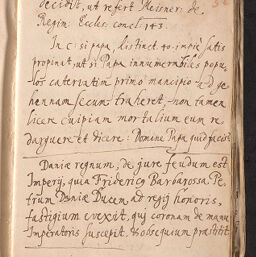 decidit, ut refert Meisner: de
Regim: Eccles: concl: 143.
In c: si papa, distinct: 40. impiè satis
propinat, ut si Papa innumerabiles popu
los catervatim primo mancipio
hennam secum traheret, non tamen
licere cuipiam mortalium eum re
darguere et dicere: Domine Papa quid facis?
Daniæ regnum, de jure feudum est
Imperij, quia Fridericus Barbarossa Pe
trum Daniæ Ducem ad regij honoris,
fastigium evexit, qui coronam de manu
Imperatoris suscepit, & obsequium præstitit